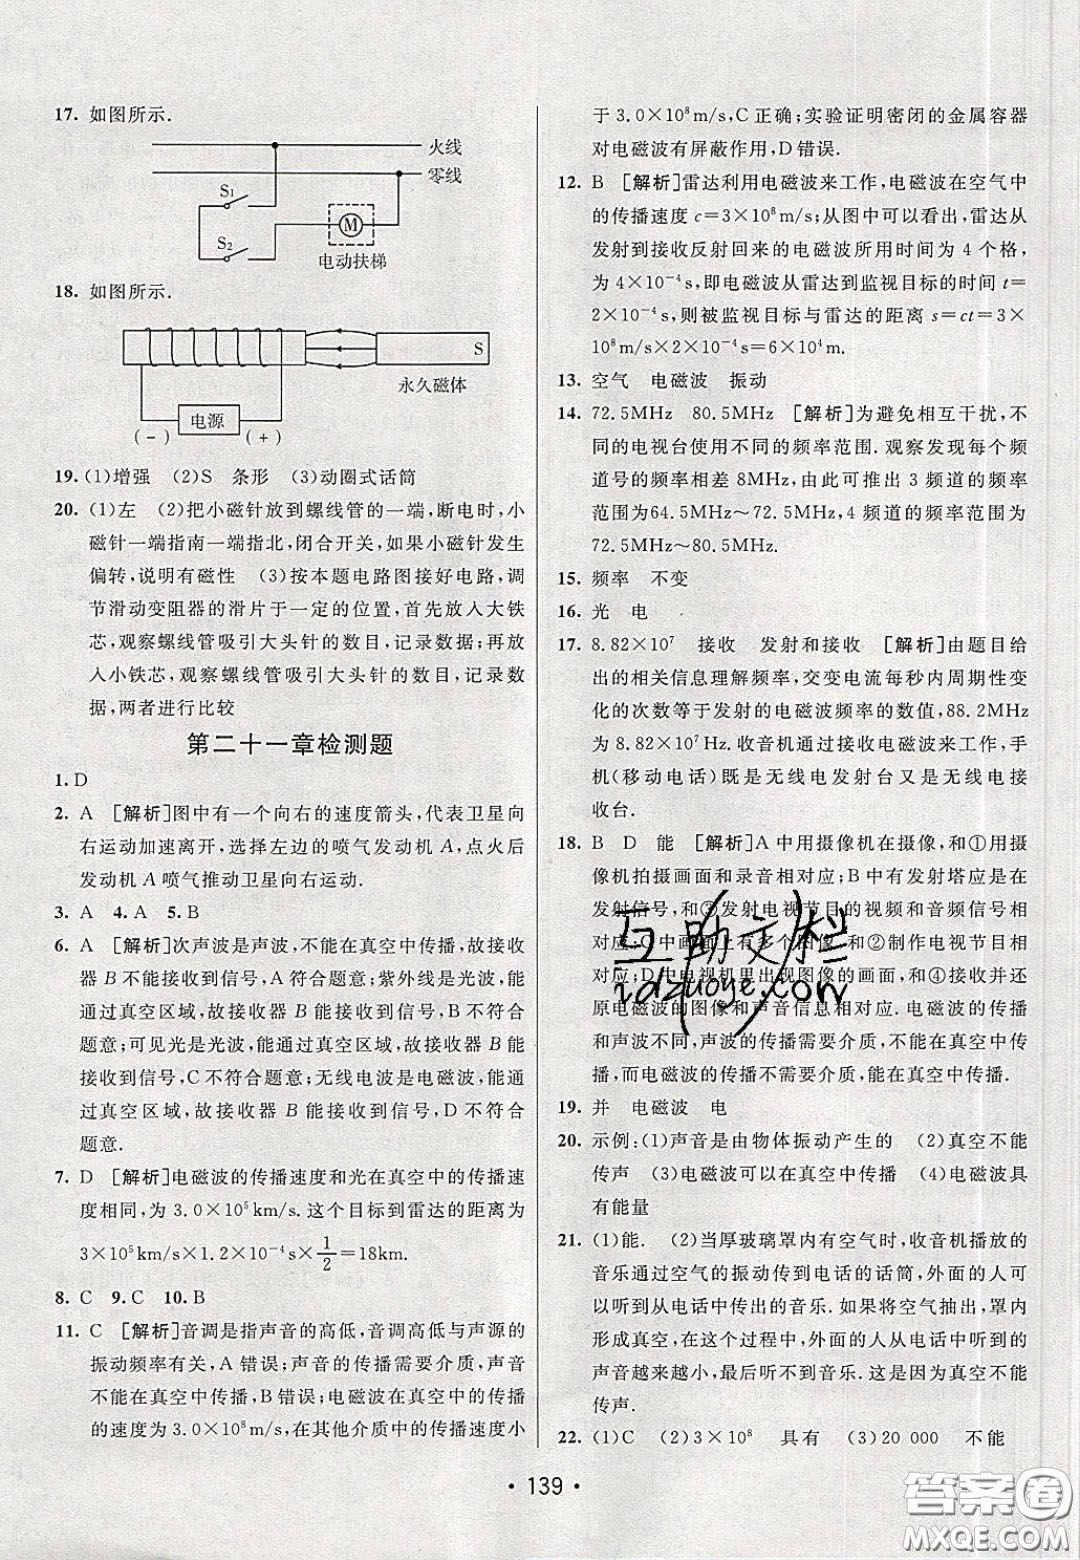 17. 如图所示.
火线
零线
S₁
S₂
M
电动扶梯
18. 如图所示.
S
永久磁体
电源
(－) (＋)
19. (1)增强 (2)S 条形 (3)动圈式话筒
20. (1)左 (2)把小磁针放到螺线管的一端,断电时,小
磁针一端指南一端指北,闭合开关,如果小磁针发生
偏转,说明有磁性 (3)按本题电路图接好电路,调
节滑动变阻器的滑片于一定的位置,首先放入大铁
芯,观察螺线管吸引大头针的数目,记录数据;再放
入小铁芯,观察螺线管吸引大头针的数目,记录数
据,两者进行比较
第二十一章检测题
1. D
2. A [解析]图中有一个向右的速度箭头,代表卫星向
右运动加速离开,选择最左边的喷气发动机 A,点火后
发动机 A 喷气推动卫星向右运动.
3. A 4. A 5. B
6. A [解析]次声波是声波,不能在真空中传播,故接收
器 B 不能接收到信号,A 符合题意;紫外线是光波,能
通过真空区域,故接收器 B 能接收到信号,B 不符合
题意;可见光是光波,能通过真空区域,故接收器 B 能
接收到信号,C 不符合题意;无线电波是电磁波,能通
过真空区域,故接收器 B 能接收到信号,D 不符合
题意.
7. D [解析]电磁波的传播速度和光在真空中的传播速
度相同,为 3.0×10⁸m/s.这个目标到雷达的距离为
3×10⁵km/s×1.2×10⁻⁴s×1/2=18km.
8. C 9. C 10. B
11. C [解析]音调是指声音的高低,音调高低与声源的
振动频率有关,A 错误;声音的传播需要介质,声音
不能在真空中传播,B 错误;电磁波在真空中的传播
的速度为 3.0×10⁸m/s,在其他介质中的传播速度小
于 3.0×10⁸m/s,C 正确;实验证明密闭的金属容器
对电磁波有屏蔽作用,D 错误.
12. B [解析]雷达利用电磁波来工作,电磁波在空气中
的传播速度 c=3×10⁸m/s;从图中可以看出,雷达从
发射到接收反射回来的电磁波所用时间为 4 个格,
为 4×10⁻⁴s,即电磁波从雷达到监视目标的时间 t=
2×10⁻⁴s,则被监视目标与雷达的距离 s=ct=3×
10⁸m/s×2×10⁻⁴s=6×10⁴m.
13. 空气 电磁波 振动
14. 72.5MHz 80.5MHz [解析]为避免相互干扰,不
同的电视台使用不同的频率范围.观察发现每个频
道号的频率相差 8MHz,由此可推出 3 频道的频率
范围为64.5MHz～72.5MHz,4 频道的频率范围为
72.5MHz～80.5MHz.
15. 频率 不变
16. 光 电
17. 8.82×10⁷ 接收 发射和接收 [解析]由题目给
出的相关信息理解频率,交变电流每秒内周期性变
化的次数等于发射的电磁波频率的数值,88.2MHz
为 8.82×10⁷Hz.收音机通过接收电磁波来工作,手
机(移动电话)既是无线电发射台又是无线电接
收台.
18. B D 能 [解析]A 中用摄像机在摄像,和①用摄
像机拍摄画面和录音相对应;B 中有发射塔应是在
发射信号,和③发射电视节目的视频和音频信号相
对应;C 中画面上有多个图像,和②制作电视节目相
对应;D 中电视机里出现图像的画面,和④接收并还
原电磁波的图像和声音信息相对应.电磁波的传播
和声波不同,声波的传播需要介质,不能在真空中传
播,而电磁波的传播不需要介质,能在真空中传播.
19. 并 电磁波 电
20. 示例:(1)声音是由物体振动产生的 (2)真空不能
传声 (3)电磁波可以在真空中传播 (4)电磁波具
有能量
21. (1)能. (2)当厚玻璃罩内有空气时,收音机播放的
音乐通过空气的振动传到电话的话筒,外面的人可
以听到从电话中传出的音乐.如果将空气抽出,罩内
形成真空,在这个过程中,外面的人从电话中听到的
声音越来越小,最后听不到音乐.这是因为真空不能
传声.
22. (1)C (2)3×10⁸ 具有 (3)20 000 不能
互助文档
idzuoye.com
· 139 ·
答案圈
MXQE.COM